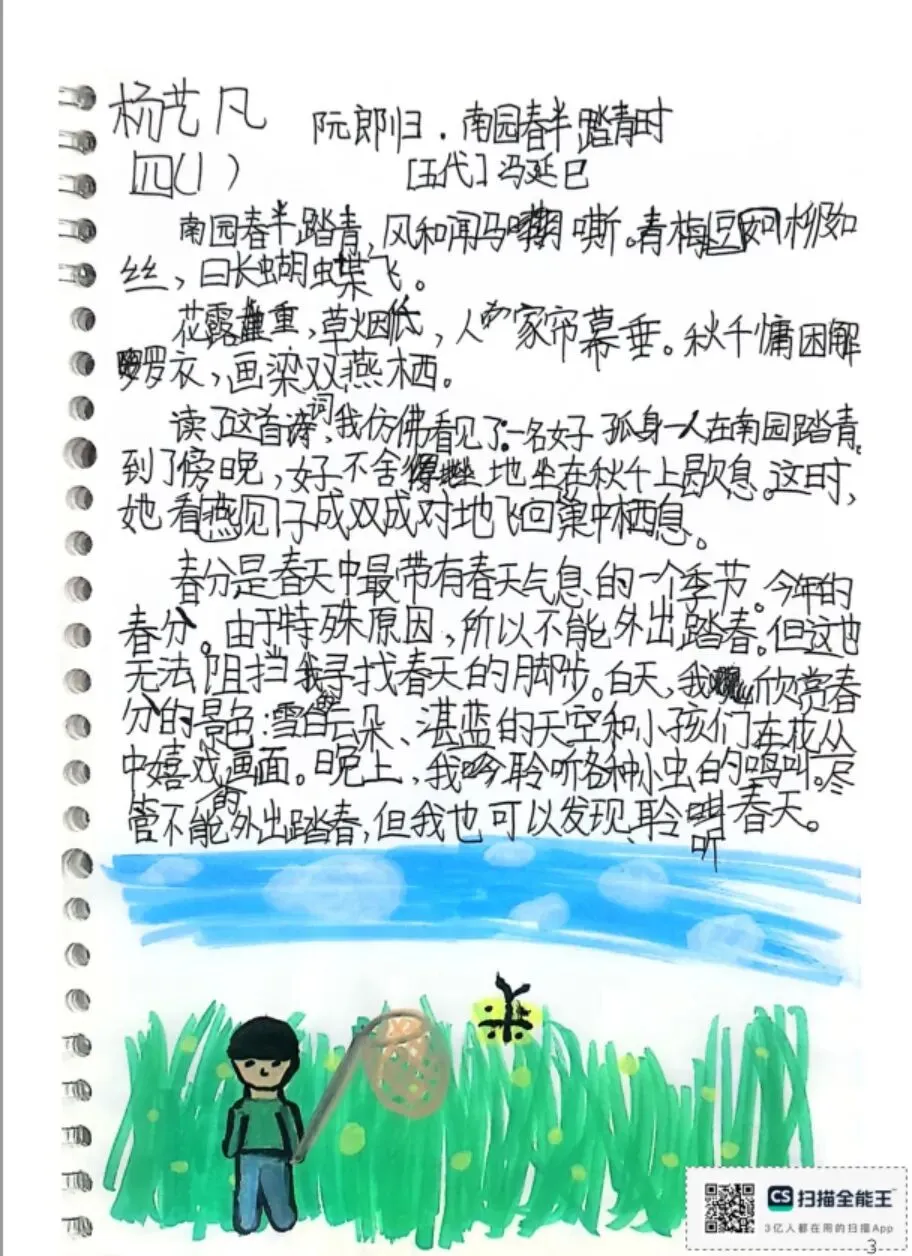 杨艺凡
阮郎归.南园春半踏青时
四(1)
[五代]冯延巳
南园春半踏青,风和闻马嘶。青梅豆如柳如
丝,日长蝴蝶飞。
花露重,草烟低,人家帘幕垂。秋千慵困解
罗衣,画梁双燕栖。
读了这首诗词,我仿佛看见了一名好 孤身一人在南园踏青。
到了傍晚,好不舍得地坐在秋千上歇息。这时,
她看燕见子成双成对地飞回巢中栖息。
春分是春天中最带有春天气息的一个季节。今年的
春分。由于特殊原因,所以不能外出踏春。但这也
无法阻挡我寻找春天的脚步。白天,我欣赏春
分的景色:雪白云朵、湛蓝的天空和小孩们在花丛
中嬉戏的画面。晚上,我吟聆听各种小虫的鸣叫。尽
管不能外出踏春,但我也可以发现、聆听春天。
CS 扫描全能王
3亿人都在用的扫描App
3